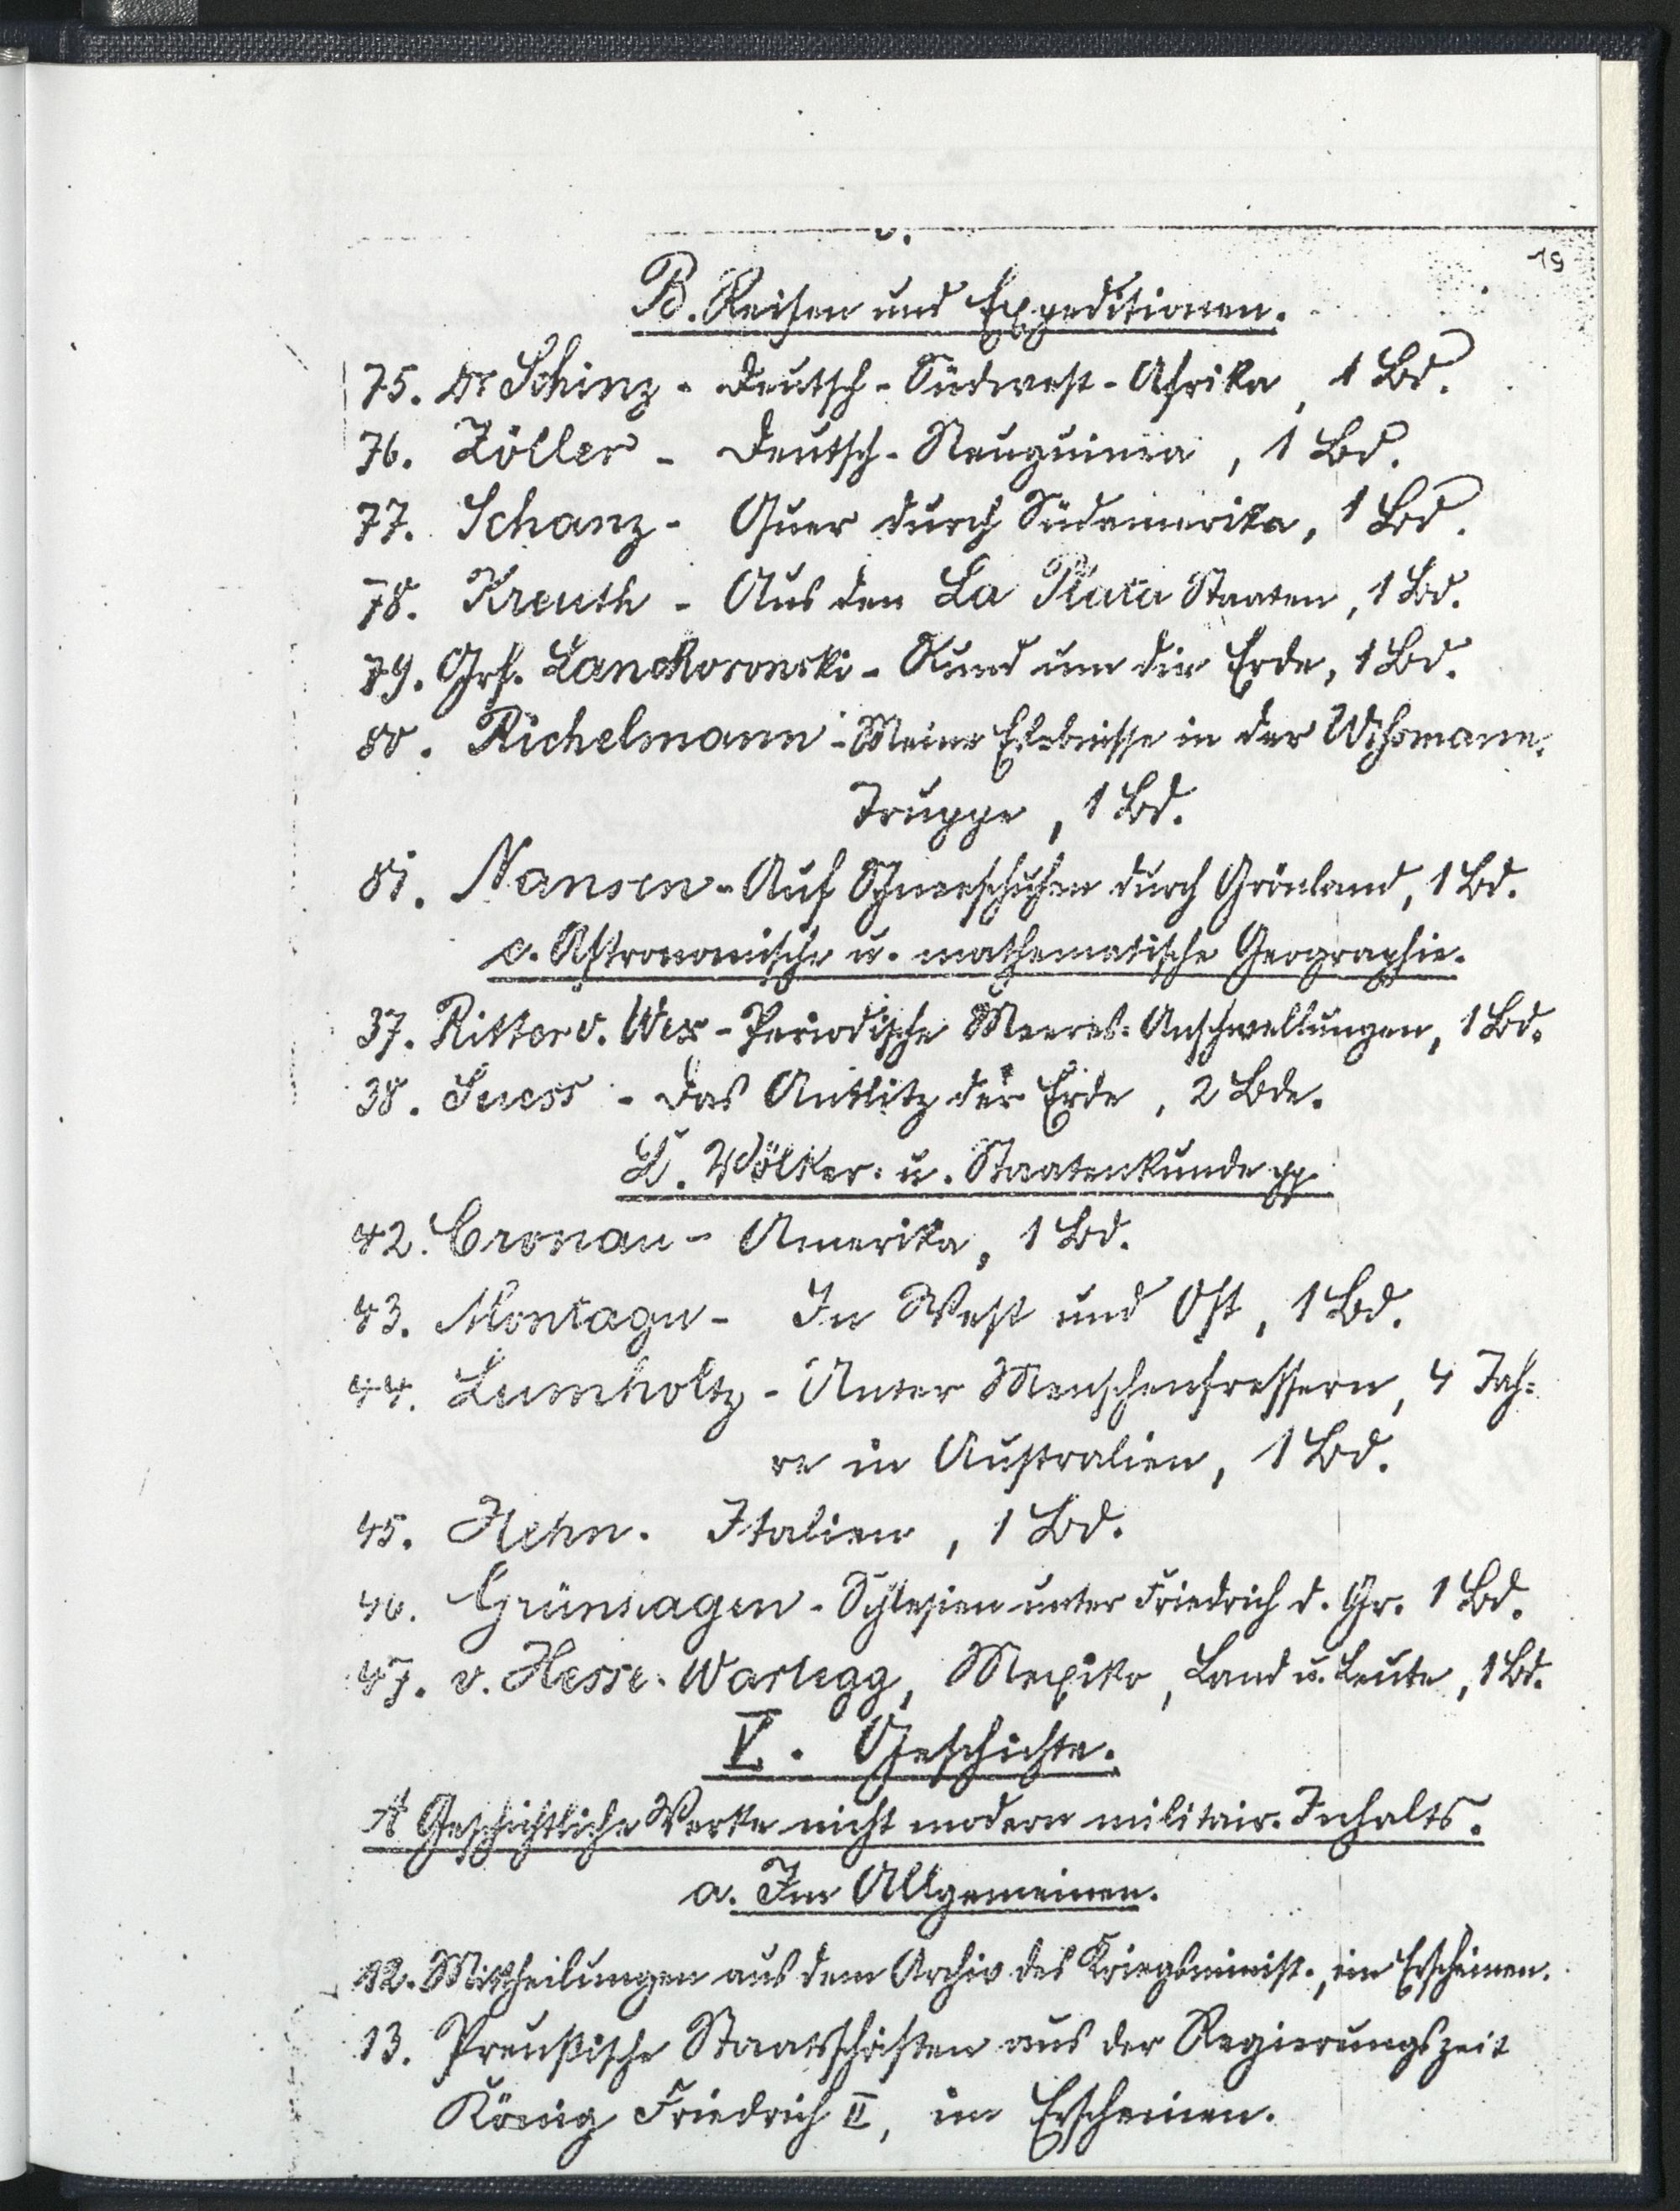 19
B. Reisen und Expeditionen.
75. Dr Schinz - Deutsch-Südwest-Afrika, 1 Bd.
76. Zöller - Deutsch-Neuguinea, 1 Bd.
77. Schanz - Quer durch Südamerika, 1 Bd.
78. Kreuth - Aus den La Plata Staaten, 1 Bd.
79. Grf. Lanckoronski - Rund um die Erde, 1 Bd.
80. Richelmann - Meine Erlebnisse in der Wißmann-
Truppe, 1 Bd.
81. Nansen - Auf Schneeschuhen durch Grönland, 1 Bd.
c. Astronomische u. mathematische Geographie.
37. Ritter v. Wex - Periodische Meeres-Anschwellungen, 1 Bd.
38. Suess - Das Antlitz der Erde, 2 Bde.
D. Völker- u. Staatenkunde pp.
42. Cronau - Amerika, 1 Bd.
43. Montagu - In West und Ost, 1 Bd.
44. Lumholtz - Unter Menschenfressern, 4 Jah-
re in Australien, 1 Bd.
45. Hehn. Italien, 1 Bd.
46. Grünhagen - Schlesien unter Friedrich d. Gr. 1 Bd.
47. v. Hesse-Wartegg, Mexiko, Land u. Leute, 1 Bd.
V. Geschichte.
A Geschichtliche Werke nicht modern militair. Inhalts.
a. Im Allgemeinen.
12. Mittheilungen aus dem Archiv des Kriegsminist., im Erscheinen.
13. Preußische Staatsschriften aus der Regierungszeit
König Friedrich II, im Erscheinen.